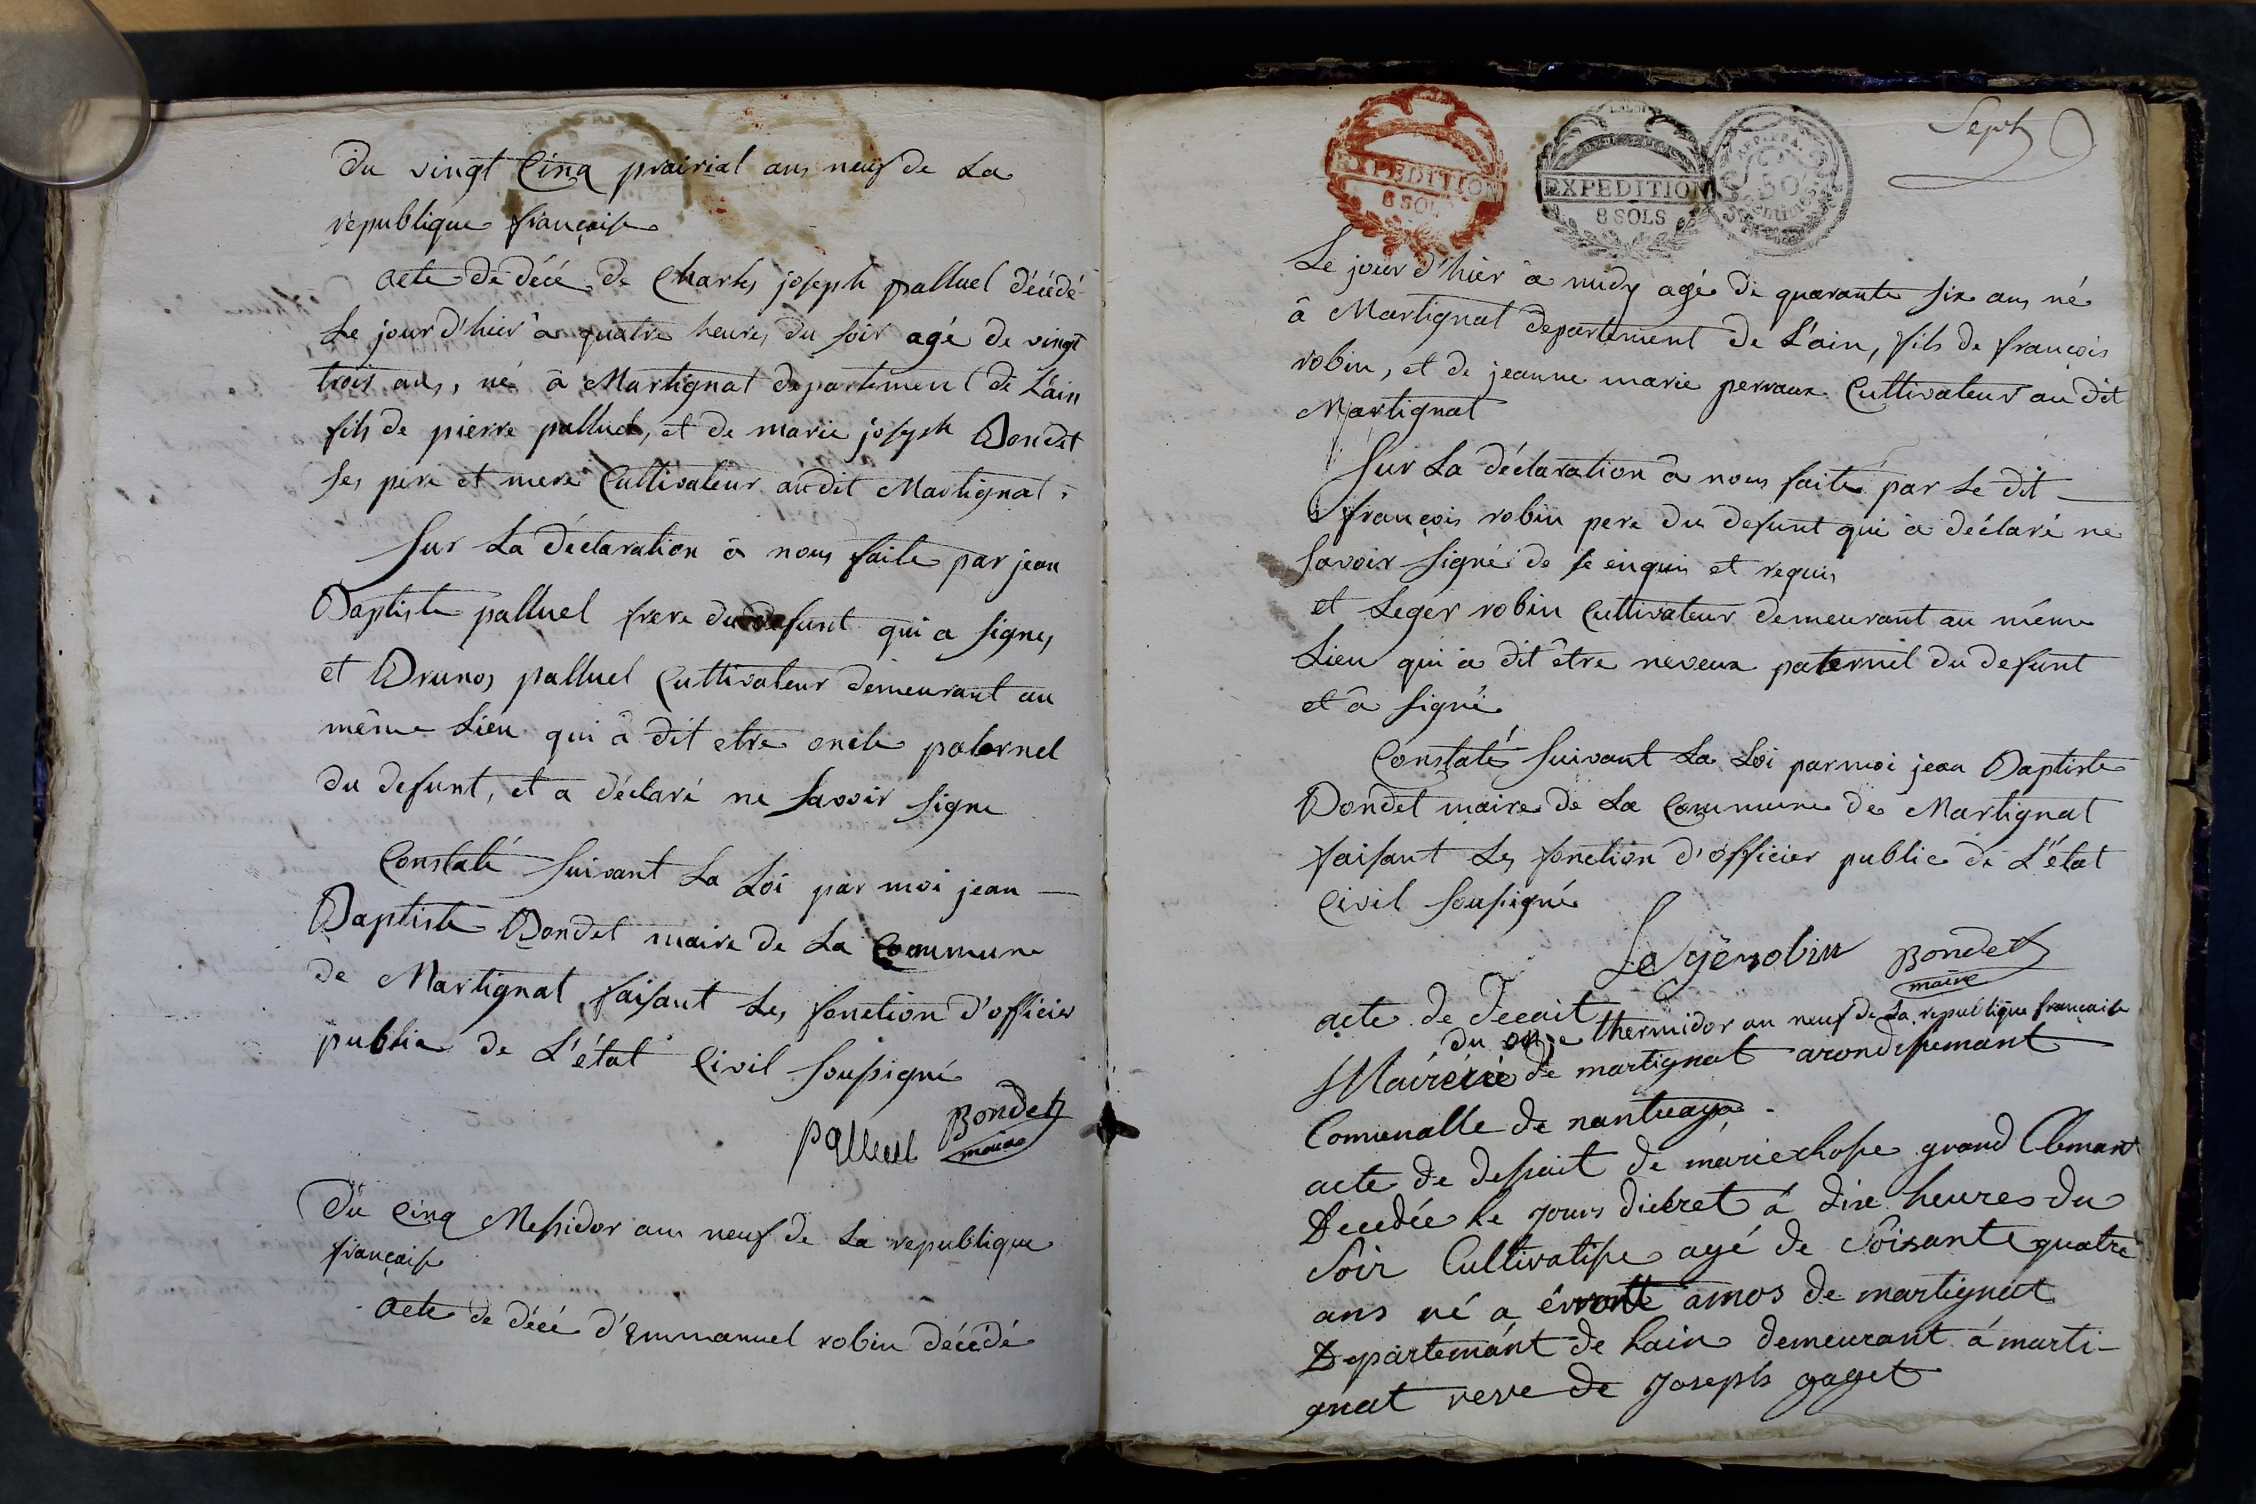 Du vingt Cinq prairial an neuf de La
republique française
acte de décé de Charles joseph palluel décédé
Le jour d'hier à quatre heures du soir agé de vingt
trois ans, né à Martignat departement de L'ain
fils de pierre palluel, et de marie joseph Bondet
ses pere et mere Cultivateur audit Martignat.
Sur La déclaration à nous faite par jean
Baptiste palluel frere du defunt qui a signé,
et Brunos palluel Cultivateur demeurant au
même Lieu qui à dit etre oncle paternel
du defunt, et a déclaré ne savoir signe
Constaté suivant La Loi par moi jean
Baptiste Bondet maire de La Commune
de Martignat faisant Les fonction d'officier
public de L'état Civil soussigné
palluel Bondet
maire
Du Cinq Messidor an neuf de La republique
française
acte de décé d'Emmanuel robin décédé
Sept
EXPEDITION
8 SOLS
EXPEDITION
8 SOLS
50
Centimes
Le jour d'hier à midy agé de quarante six ans né
à Martignat departement de L'ain, fils de françois
robin, et de jeanne marie pervaux Cultivateur au dit
Martignat
Sur La déclaration à nous faite par Le dit
françois robin pere du defunt qui à déclaré ne
savoir signé de ce enquis et requis
et Leger robin Cultivateur demeurant au même
Lieu qui à dit être neveux paternel du defunt
et à signé
Constaté suivant La Loi par moi jean Baptiste
Bondet maire de La Commune de Martignat
faisant Les fonction d'officier public de L'état
Civil soussigné
Legé robin Bondet
maire
acte de decait
du onze thermidor an neuf de La republique française
Mairerie de martignat arondissemant
Comunalle de nantuaya
acte de dessait de marie grand Clemant
Decedée le jours dieret á dix heures du
Soir Cultivatise agé de Soixante quatre
ans né a amos de martignat
Departemant de lain demeurant á marti-
gnat veve de Joseph gaget